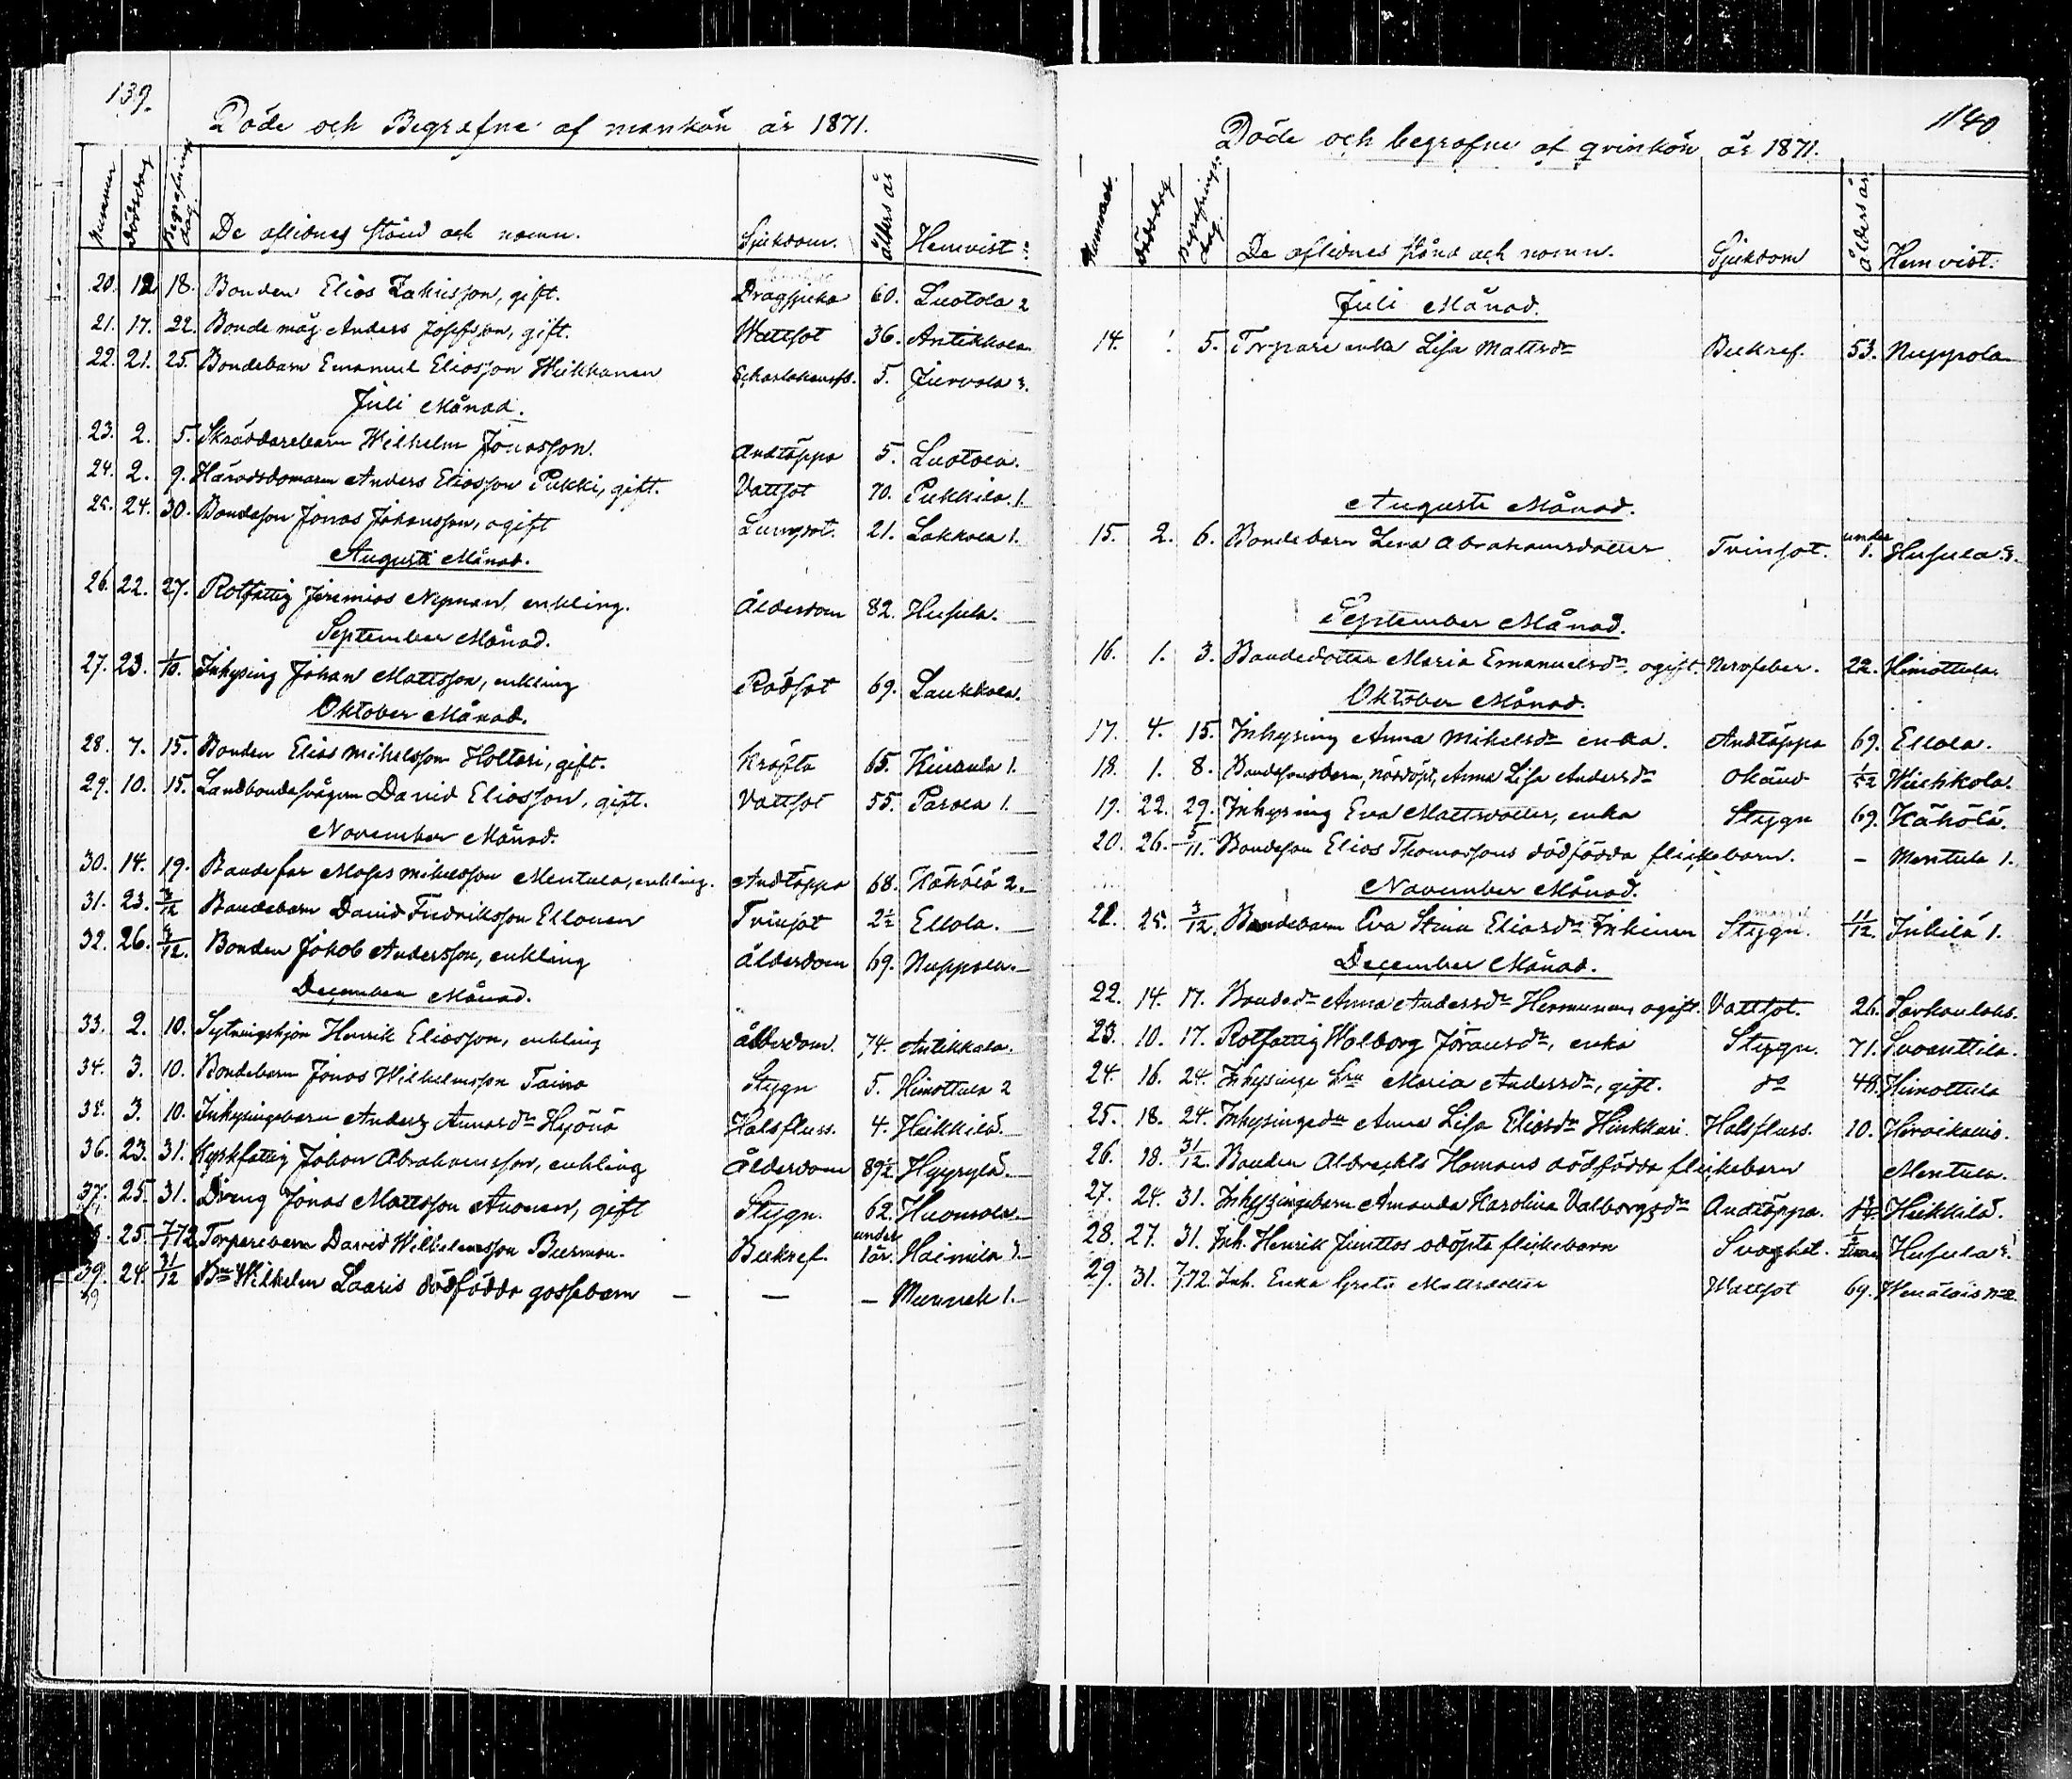 139.
Döde och Begrafne af mankön år 1871.
Nummer Dödsdag Begrafnings dag. De aflidnes stånd och namn. Sjukdom. Ålders år Hemvist:
20. 12 18. Bonden Elias Zakrisson, gift. Dragsjuka 60. Luotola 2
21. 17. 22. Bonde måg Anders Josefsson, gift. Wattsot 36. Antikkala
22. 21. 25. Bondebarn Emanuel Eliasson Heikkanen 5.
Juli Månad.
23. 2. 5. Skräddarebarn Wilhelm Jonasson. Andtäppa 5. Luotola.
24. 2. 9. Häradsdomaren Anders Eliasson Pukki, gift. Vattsot 70. Pukkila. 1.
25. 24. 30. Bondeson Jonas Johansson, ogift Lungsot. 21. Lakkola 1.
Augusti Månad.
26. 22. 27. Rotfattig Jeremias Nyman, enkling. Ålderdom 82. Husula.
September Månad.
27. 23. 1/10. Inhysing Johan Mattsson, enkling Rödsot 69. Laukkala.
Oktober Månad.
28. 7. 15. Bonden Elias Mikelsson Holttari, gift. Kräfta 65. 1.
29. 10. 15. Landbondesvågern David Eliasson, gift. Vattsot 55. Parola 1.
November Månad.
30. 14. 19. Bondefar Moses Mikelsson Mentula, enkling. Andtäppa 68. Kähölä 2.
31. 23. 3/12 Bondebarn David Fredriksson Ellonen Trinsot 2½ Ellola.
32. 26. 3/12. Bonden Jakob Andersson, enkling Ålderdom 69. Nuppola.
December Månad.
33. 2. 10. Sytningshjon Henrik Eliasson, enkling Ålderdom. 74. Antikkala.
34. 3. 10. Bondebarn Jonas Wilhelmsson Taina Stygn 5. Himottula 2
35. 3. 10. Inhysingebarn Anders Annasdr Hyönä Halsfluss. 4. Heikkilä.
36. 23. 31. Kyrkfattig Johan Abrahamsson, enkling Ålderdom 89½ Hyyrylä.
37. 25. 31. Dreng Jonas Mattsson Auonen, gift Stygn. 62. Huomola.
25. 7/1 72. Torparebarn David Wilhelmsson Buerman. Bukref. under 1 år. Haimila 3.
39. 24. 31/12 Bn Wilhelm Laaris dödfödda gossebarn — — — Munneh 1.
1140
Döde och begrafne af qvinkön år 1871.
Nummer. Dödsdag Begrafnings dag. De aflidnes stånd och namn. Sjukdom Ålders år Hemvist.
Juli Månad.
14. 1. 5. Torpare enka Lisa Mattsdr Bukref. 53. Nuppola
Augusti Månad.
15. 2. 6. Bondebarn Lena Abrahamsdotter Trinsot. under 1. Husula 3.
September Månad.
16. 1. 3. Bondedotter Maria Emanuelsdr. ogift. Nervfeber. 22. Himottula.
Oktober Månad.
17. 4. 15. Inhysing Anna Mikelsdr enka. Andtäppa 69. Ellola.
18. 1. 8. Bondesonsbarn, nöddöpt, Anna Lisa Andersdr Okänd 1/52
19. 22. 29. Inhysing Eva Mattsdotter, enka Stygn 69. Kähölä.
20. 26. 5/11. Bondeson Elias Thomassons dödfödda flickebarn. – Mentula 1.
November Månad.
21. 25. 3/12. Bondebarn Eva Stina Eliasdr Inkinen Stygn. 11/12. Inkilä 1.
December Månad.
22. 14. 17. Bondedr Anna Andersdr Hermunen, ogift. Vattsot. 26.
23. 10. 17. Rotfattig Walborg Göransdr, enka Stygn. 71. Suoanttila.
24. 16. 24. Inhysinge hru Maria Andersdr, gift. do 48. Himottula
25. 18. 24. Inhysingedr Anna Lisa Eliasdr Hinkkari. Halsfluss. 10.
26. 18. 31/12. Bonden Albrekts Homans dödfödda flickebarn Mentula.
27. 24. 31. Inhysingebarn Amanda Karolina Valborgsdr Andtäppa. Heikkilä.
28. 27. 31. Inh. Henrik Junttos odöpta flickebarn Svaghet. Husula
29. 31. 7/1 72. Inh. Enka Greta Mattsdotter Wattsot 69.